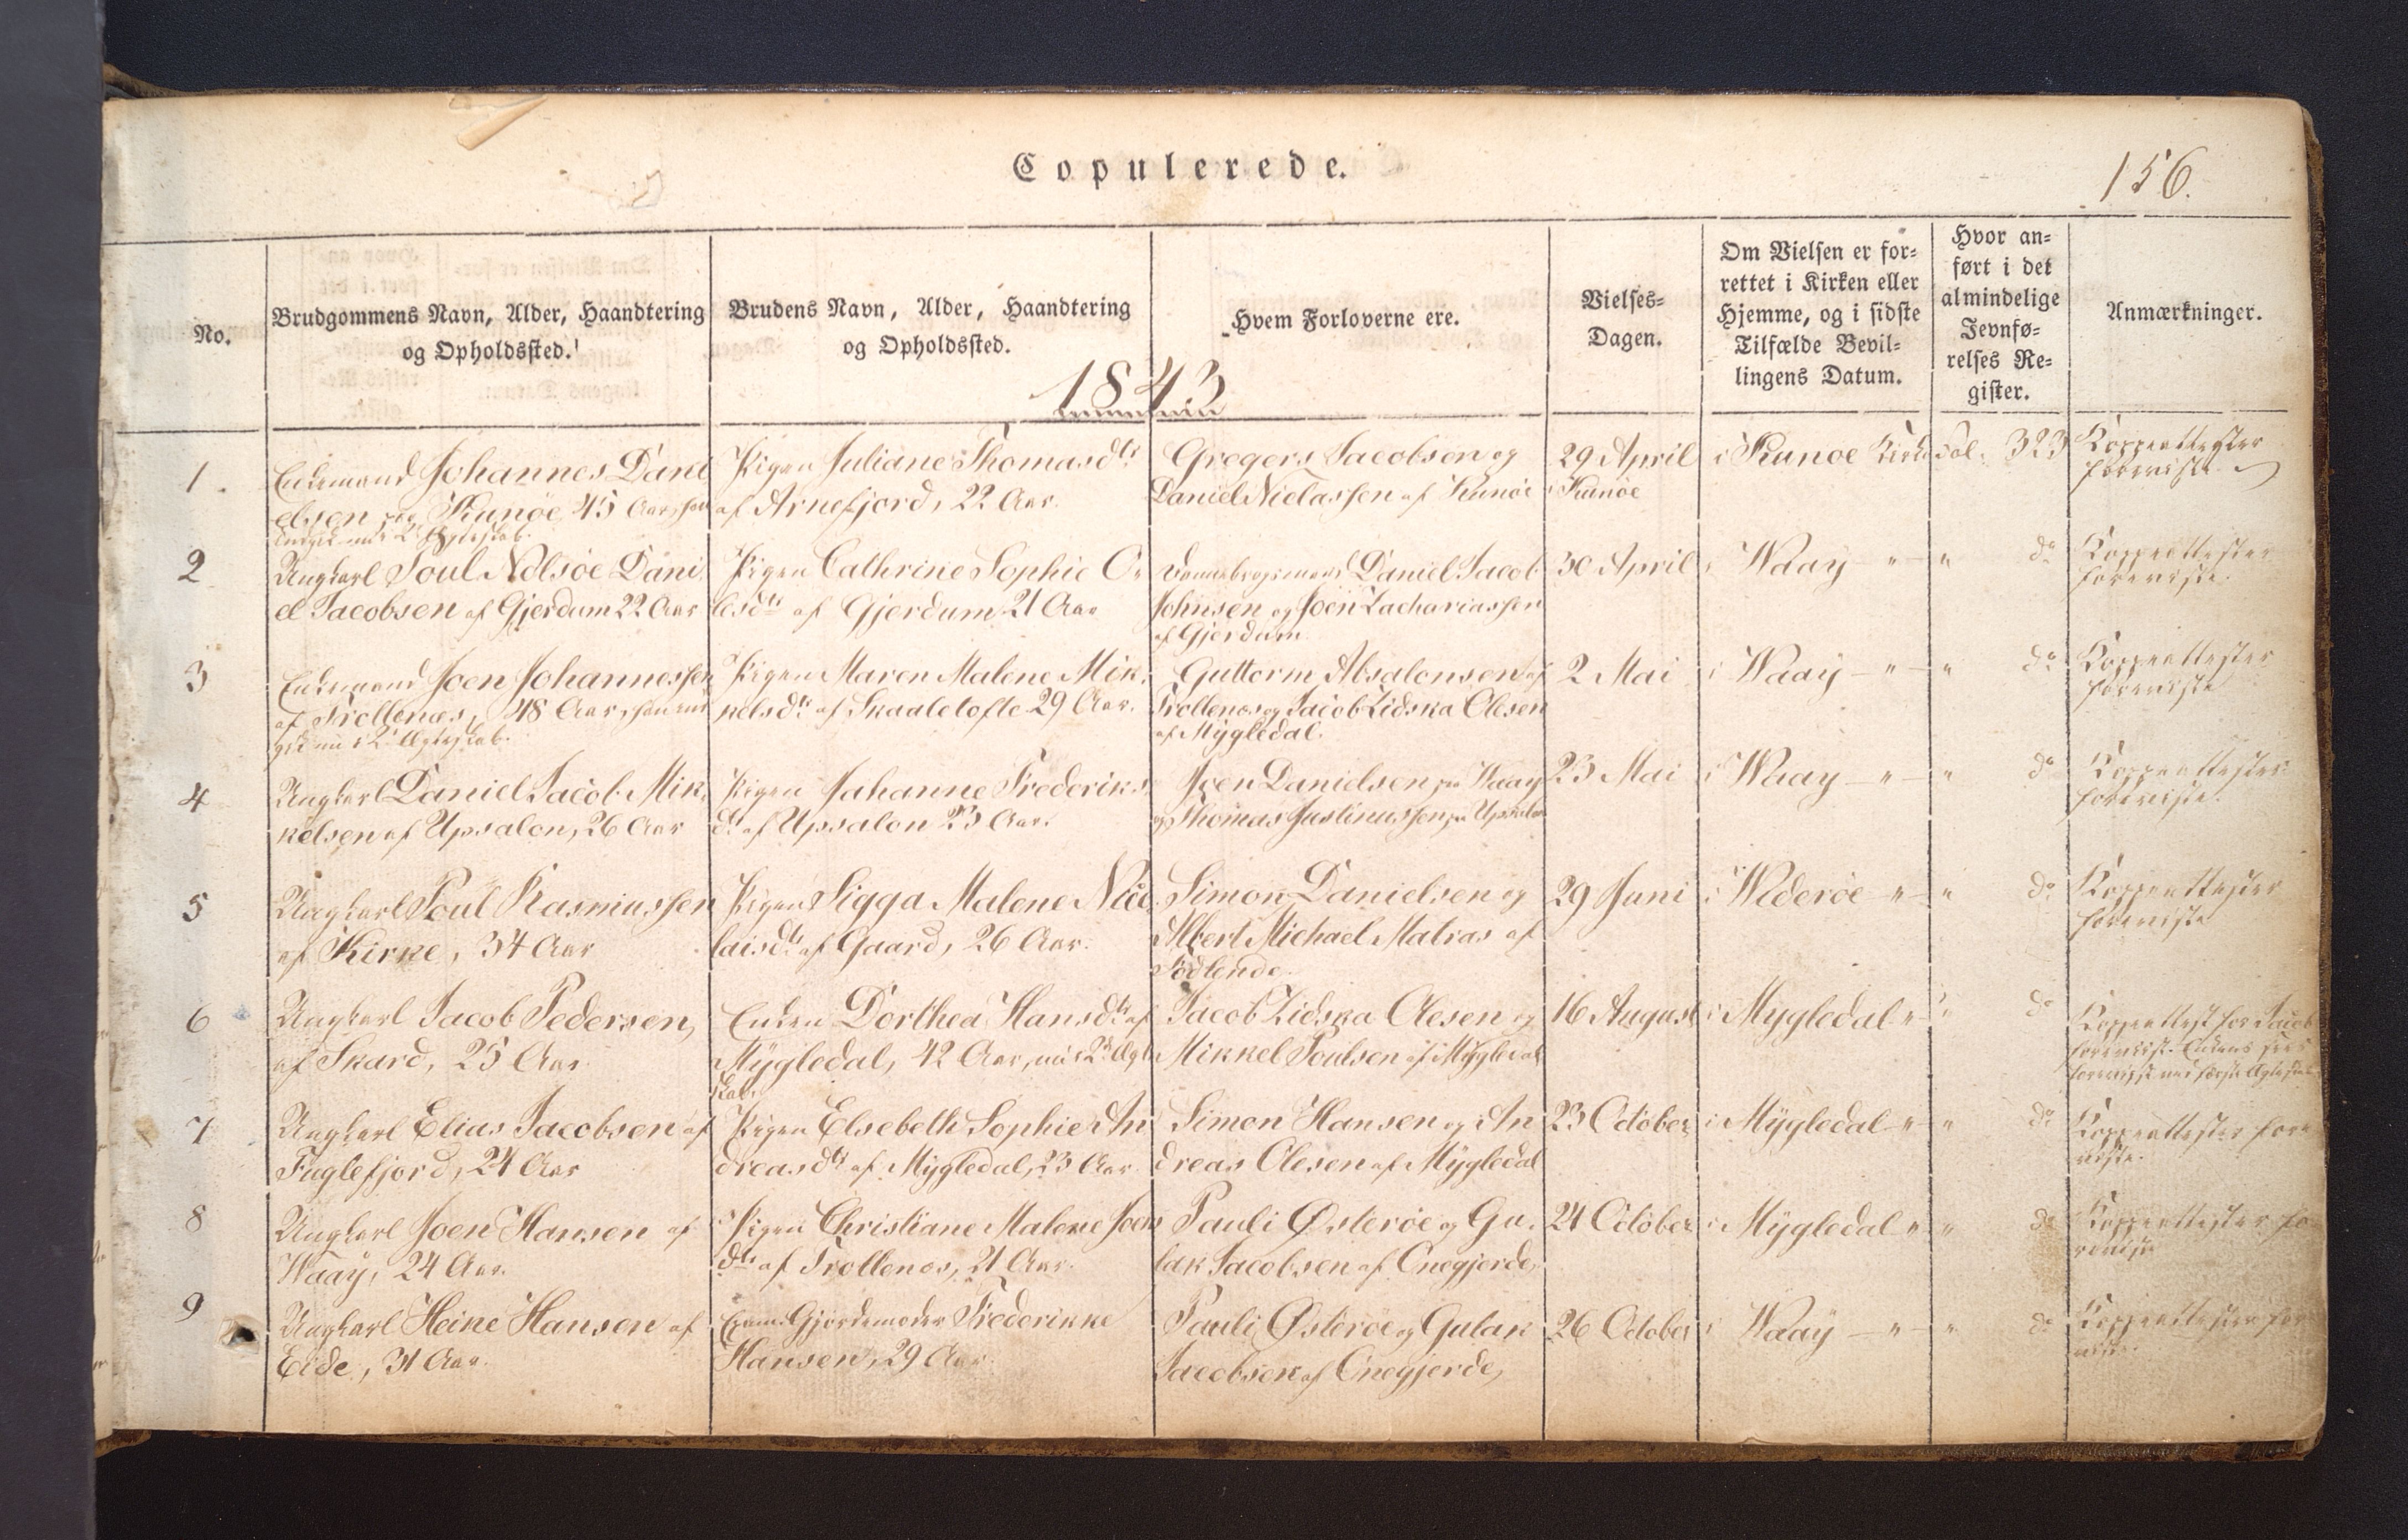 Copulerede.
156.
No.
Brudgommens Navn, Alder, Haandtering
og Opholdssted.
Brudens Navn, Alder, Haandtering
og Opholdssted.
Hvem Forloverne ere.
Vielses=
Dagen.
Om Vielsen er for=
rettet i Kirken eller
Hjemme, og i sidste
Tilfælde Bevil=
lingens Datum.
Hvor an=
ført i det
almindelige
Jevnfø=
relses Re=
gister.
Anmærkninger.
1843
1.
Enkemand Johannes Dani
elsen paa Kunöe, 45 Aar, han
indgik nu i 2det Ægteskab.
Pigen Juliane Thomasdtr
af Arnefjord, 22 Aar.
Gregers Jacobsen og
Daniel Nielassen af Kunöe
29 April
i Kunöe
i Kunoe Kirke
Fol. 323
Koppeattester
foreviste.
2
Ungkarl Poul Nolsöe Dani
el Jacobsen af Gjerdum 22 Aar
Pigen Cathrine Sophie O=
lesdtr af Gjerdum 21 Aar
Dannebrogsmand Daniel Jacob
Johnsen og Joen Zachariassen
af Gjerdum.
30 April
i Waay " "
do
Koppeattester
foreviste.
3
Enkemand Joen Johannessen
af Trollenæs, 48 Aar, han ind
gik nu i 2det Ægteskab.
Pigen Maren Malene Mik=
kelsdtr af Skaaletofte 29 Aar.
Guttorm Absalonsen af
Trollenos og Jacob Zidska Olesen
af Mÿgledal.
2 Mai
i Waay " "
do
Koppeattester
foreviste
4
Ungkarl Daniel Jacob Mik=
kelsen af Upsalen, 26 Aar
Pigen Johanne Frederiks
dtr af Upsalon 23 Aar.
Joen Danielsen paa Waay
og Thomas Justinussen paa Upsalon
23 Mai
i Waay " "
do
Koppeattester
foreviste.
5
Ungkarl Poul Rasmussen
af Kirke, 34 Aar
Pigen Sigga Malene Nico
laisdtr af Gaard, 26 Aar.
Simon Danielsen og
Albert Michael Matras af
Södlende.
29 Juni
i Wideröe " "
do
Koppeattester
foreviste
6
Ungkarl Jacob Pedersen,
af Skard, 25 Aar
Enken Dorthea Hansdtr af
Mÿgledal, 42 Aar, nu i 2det Ægte
skab.
Jacob Zidska Olesen og
Mikkel Poulsen af Mÿgledal
16 August
i Mÿgledal " "
do
Koppeattest for Jacob
forevist. Enkens er
forevist ved förste Ægteskab
7
Ungkarl Elias Jacobsen af
Fuglefjord, 24 Aar
Pigen Elsebeth Sophie An
dreasdtr af Mÿgledal, 23 Aar.
Simon Hansen og An
dreas Olesen af Mÿgledal
23 October
i Mÿgledal " "
do
Koppeattester fore
viste.
8
Ungkarl Joen Hansen af
Waaÿ, 24 Aar.
Pigen Christiane Malene Joens
dtr af Trollenos, 21 Aar.
Pauli Österöe og Gu=
lak Jacobsen af Önegjerde,
24 October
i Mÿgledal " "
do
Koppeattester fo
reviste
9
Ungkarl Heine Hansen af
Eide, 31 Aar.
Exam. Gjordemoder Frederikke
Hansen, 29 Aar.
Pauli Österöe og Gulak
Jacobsen af Önegjerde,
26 October
i Waaÿ " "
do
Koppeattester fore
viste.